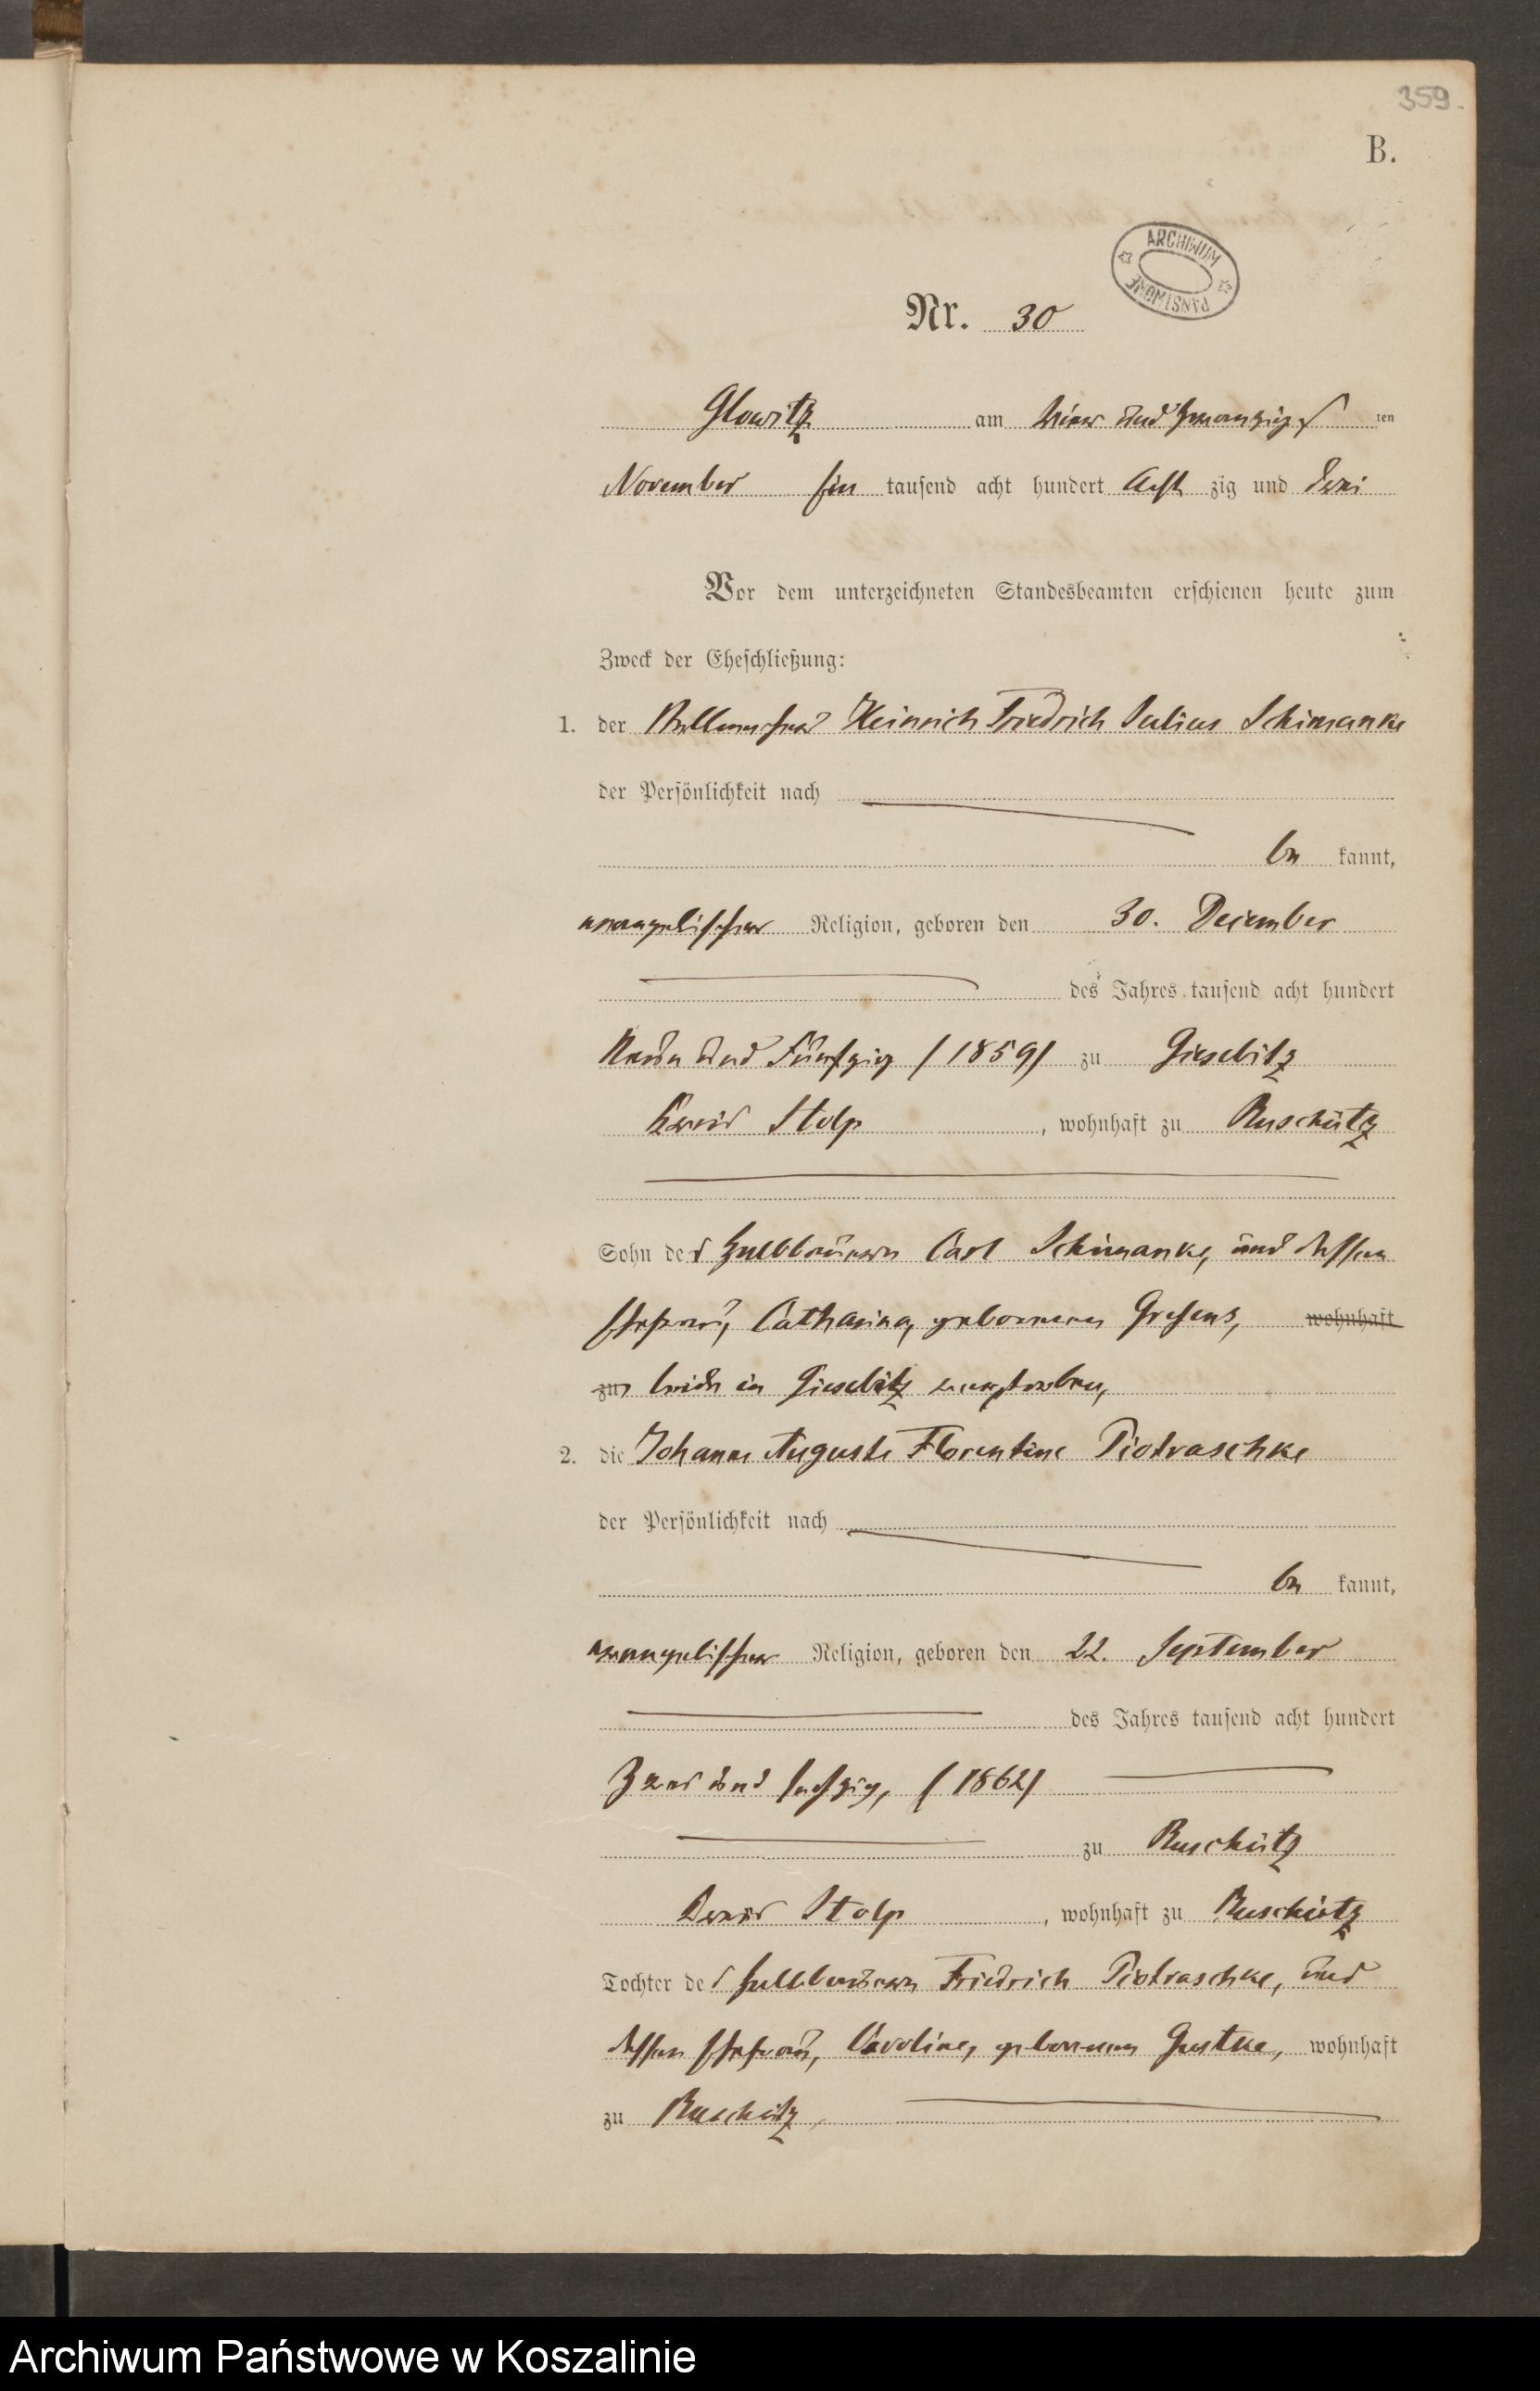 359.
B.
ARCHIWUM PAŃSTWOWE
Nr. 30
Glowitz am vier und zwanzigst ten
November Ein tausend acht hundert acht zig und drei
Vor dem unterzeichneten Standesbeamten erschienen heute zum
Zweck der Eheschließung:
1. der Heinrich Friedrich Julius Schimanke
der Persönlichkeit nach
be kannt,
evangelischer Religion, geboren den 30. December
des Jahres tausend acht hundert
Neun und Fünfzig (1859) zu Giesebitz
Kreis Stolp, wohnhaft zu Ruschütz
Sohn des Halbbauern Carl Schimanke, und dessen
Ehefrau, Catharina, geborenen Gresens, wohnhaft
zu beide in Giesebitz verstorben,
2. die Johanne Auguste Florentine Piotraschke
der Persönlichkeit nach
be kannt,
evangelischer Religion, geboren den 22. September
des Jahres tausend acht hundert
Zwei und sechzig, (1862)
zu Ruschütz
Kreis Stolp, wohnhaft zu Ruschütz
Tochter des Halbbauern Friedrich Piotraschke, und
dessen Ehefrau, Caroline, geborenen wohnhaft
zu Ruschütz,
Archiwum Państwowe w Koszalinie